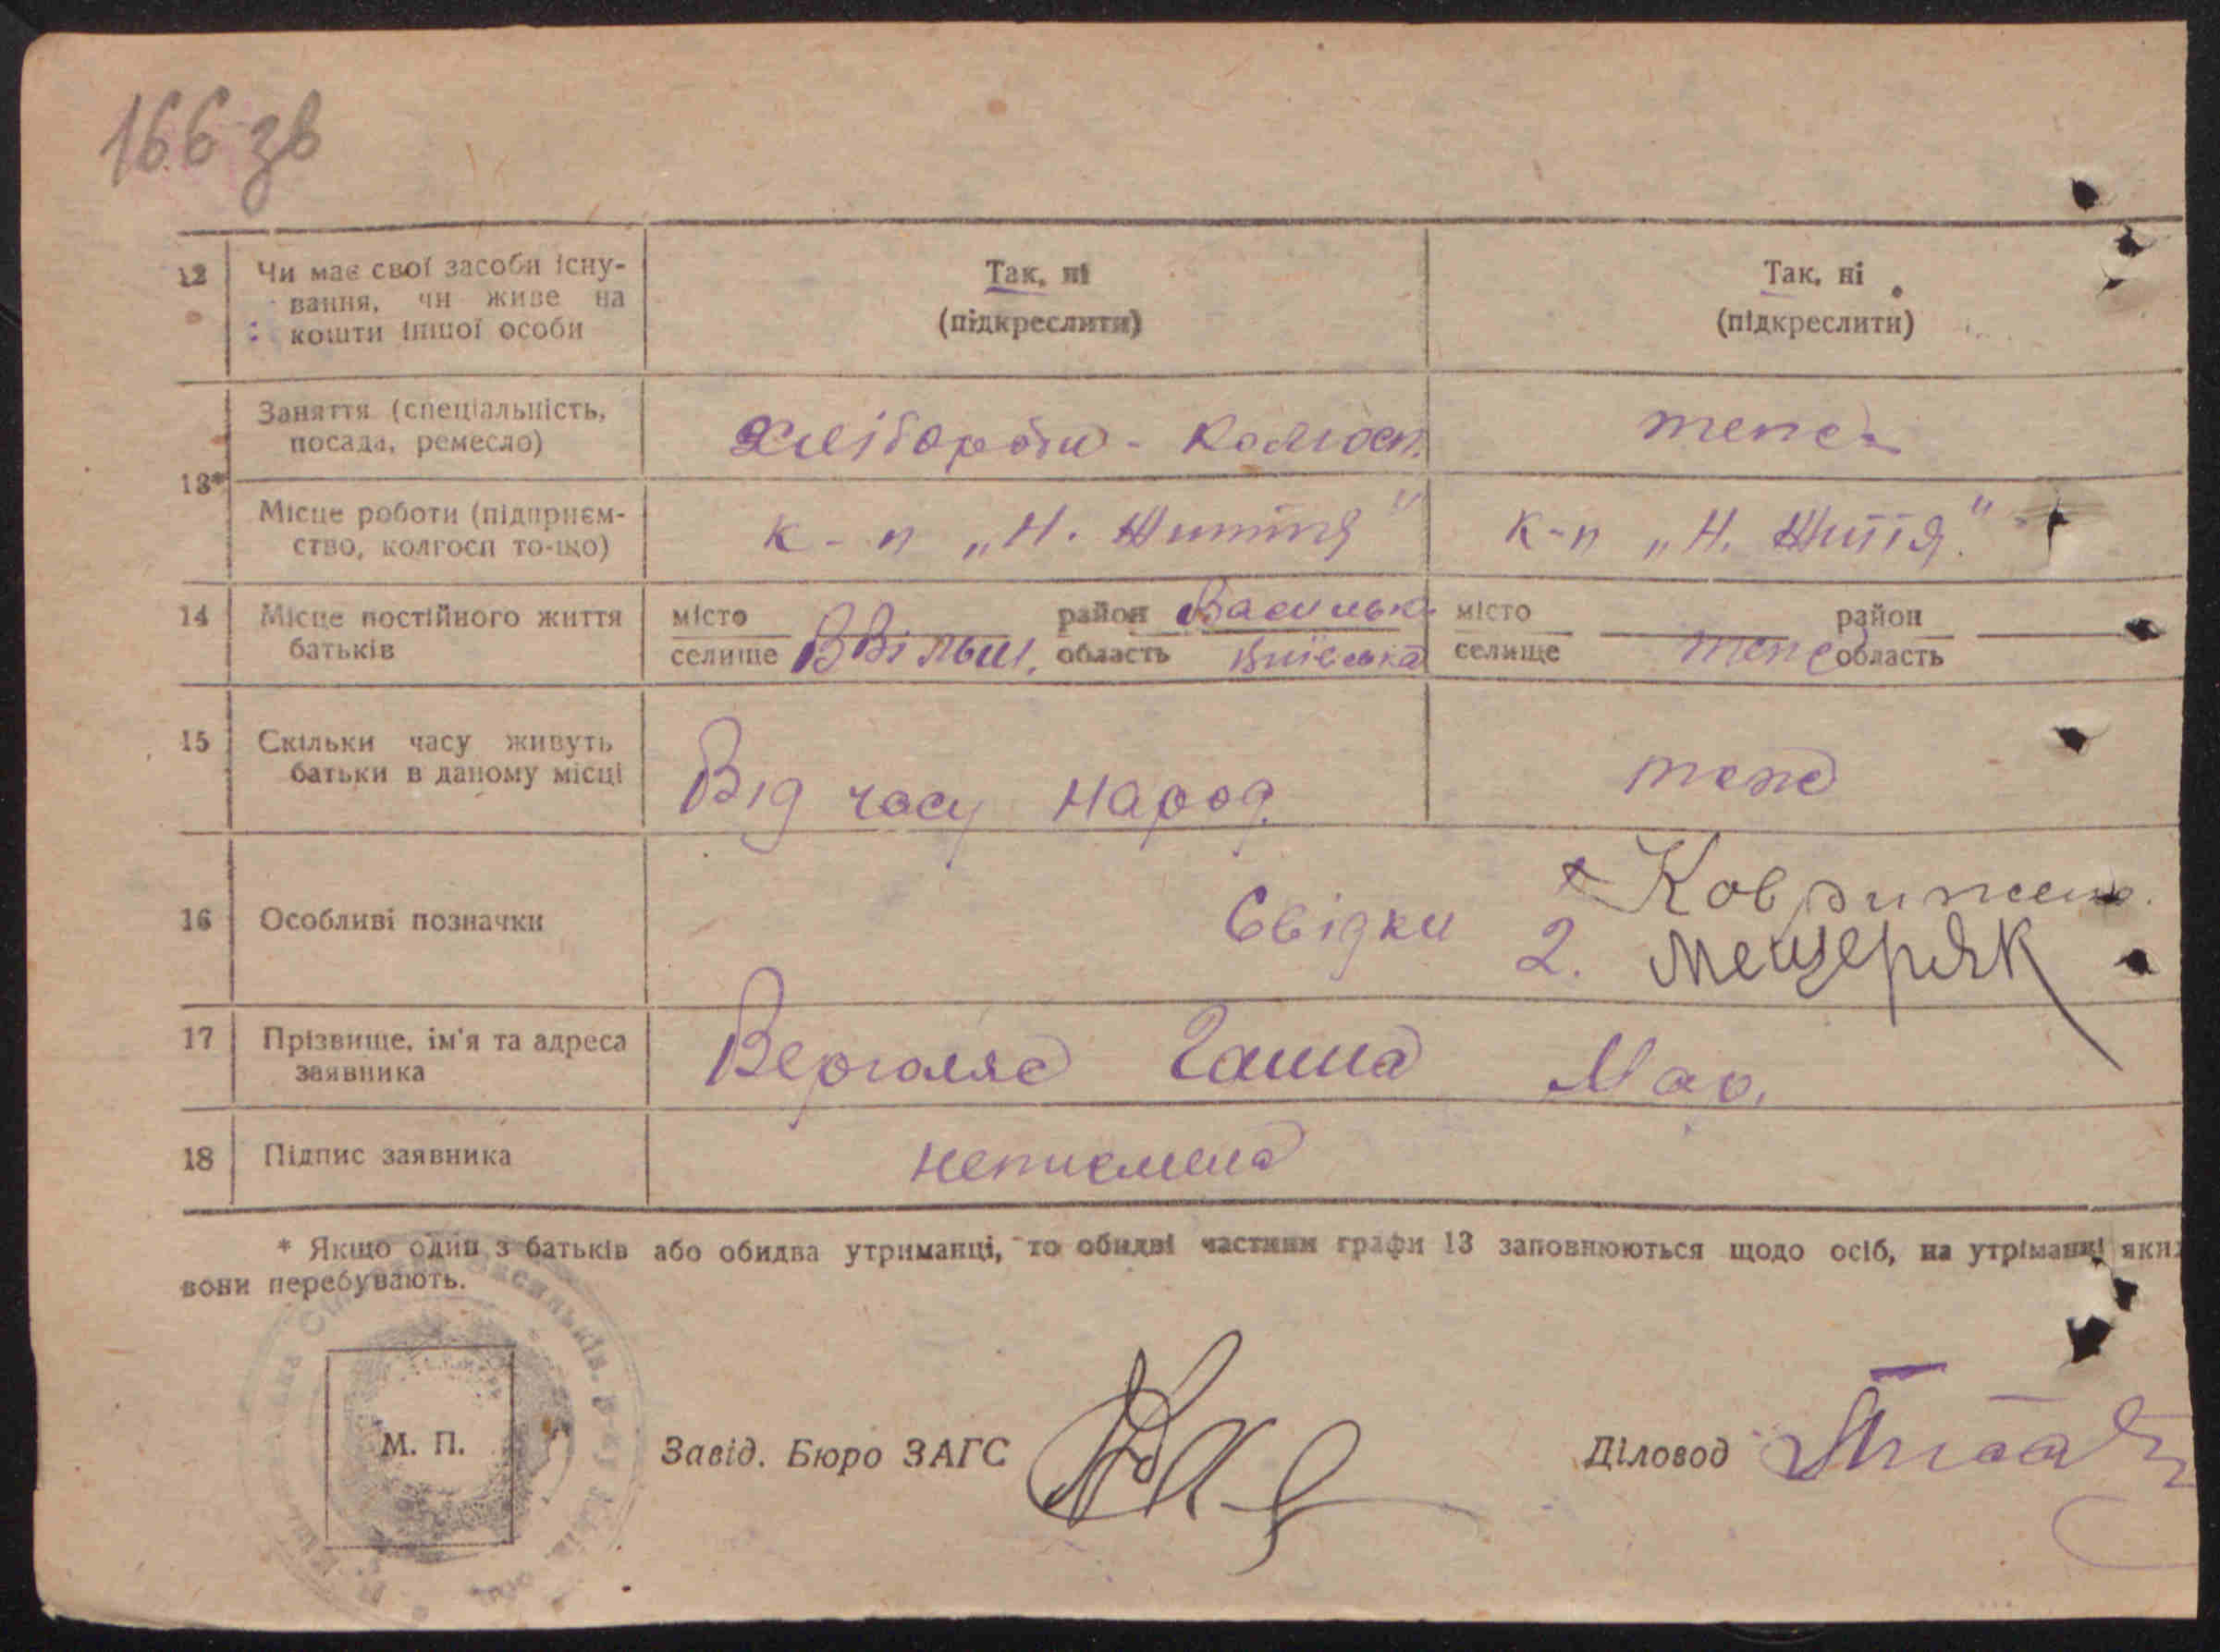 166 зв
12 Чи має свої засоби існу-
вання, чи живе на
кошти іншої особи
Так, ні
(підкреслити)
Так, ні
(підкреслити)
13*
Заняття (спеціальність,
посада, ремесло)
хліборобш - колгосп.
теж
Місце роботи (підприєм-
ство, колгосп то-що)
к-п „Н. Життя"
к-п „Н. Життя."
14 Місце постійного життя
батьків
місто
селище
район Васильк
область Київська
місто
селище теж
район
область
15 Скільки часу живуть
батьки в даному місці
Від часу народ.
теж
16 Особливі позначки
Свідки
2. Мещеряк
17 Прізвище, ім'я та адреса
заявника
Ганна Мар.
18 Підпис заявника
неписмена
* Якщо один з батьків або обидва утриманці, то обидві частини графи 13 заповнюються щодо осіб, на утріманці яких
вони перебувають.
М. П.
Завід. Бюро ЗАГС
Діловод